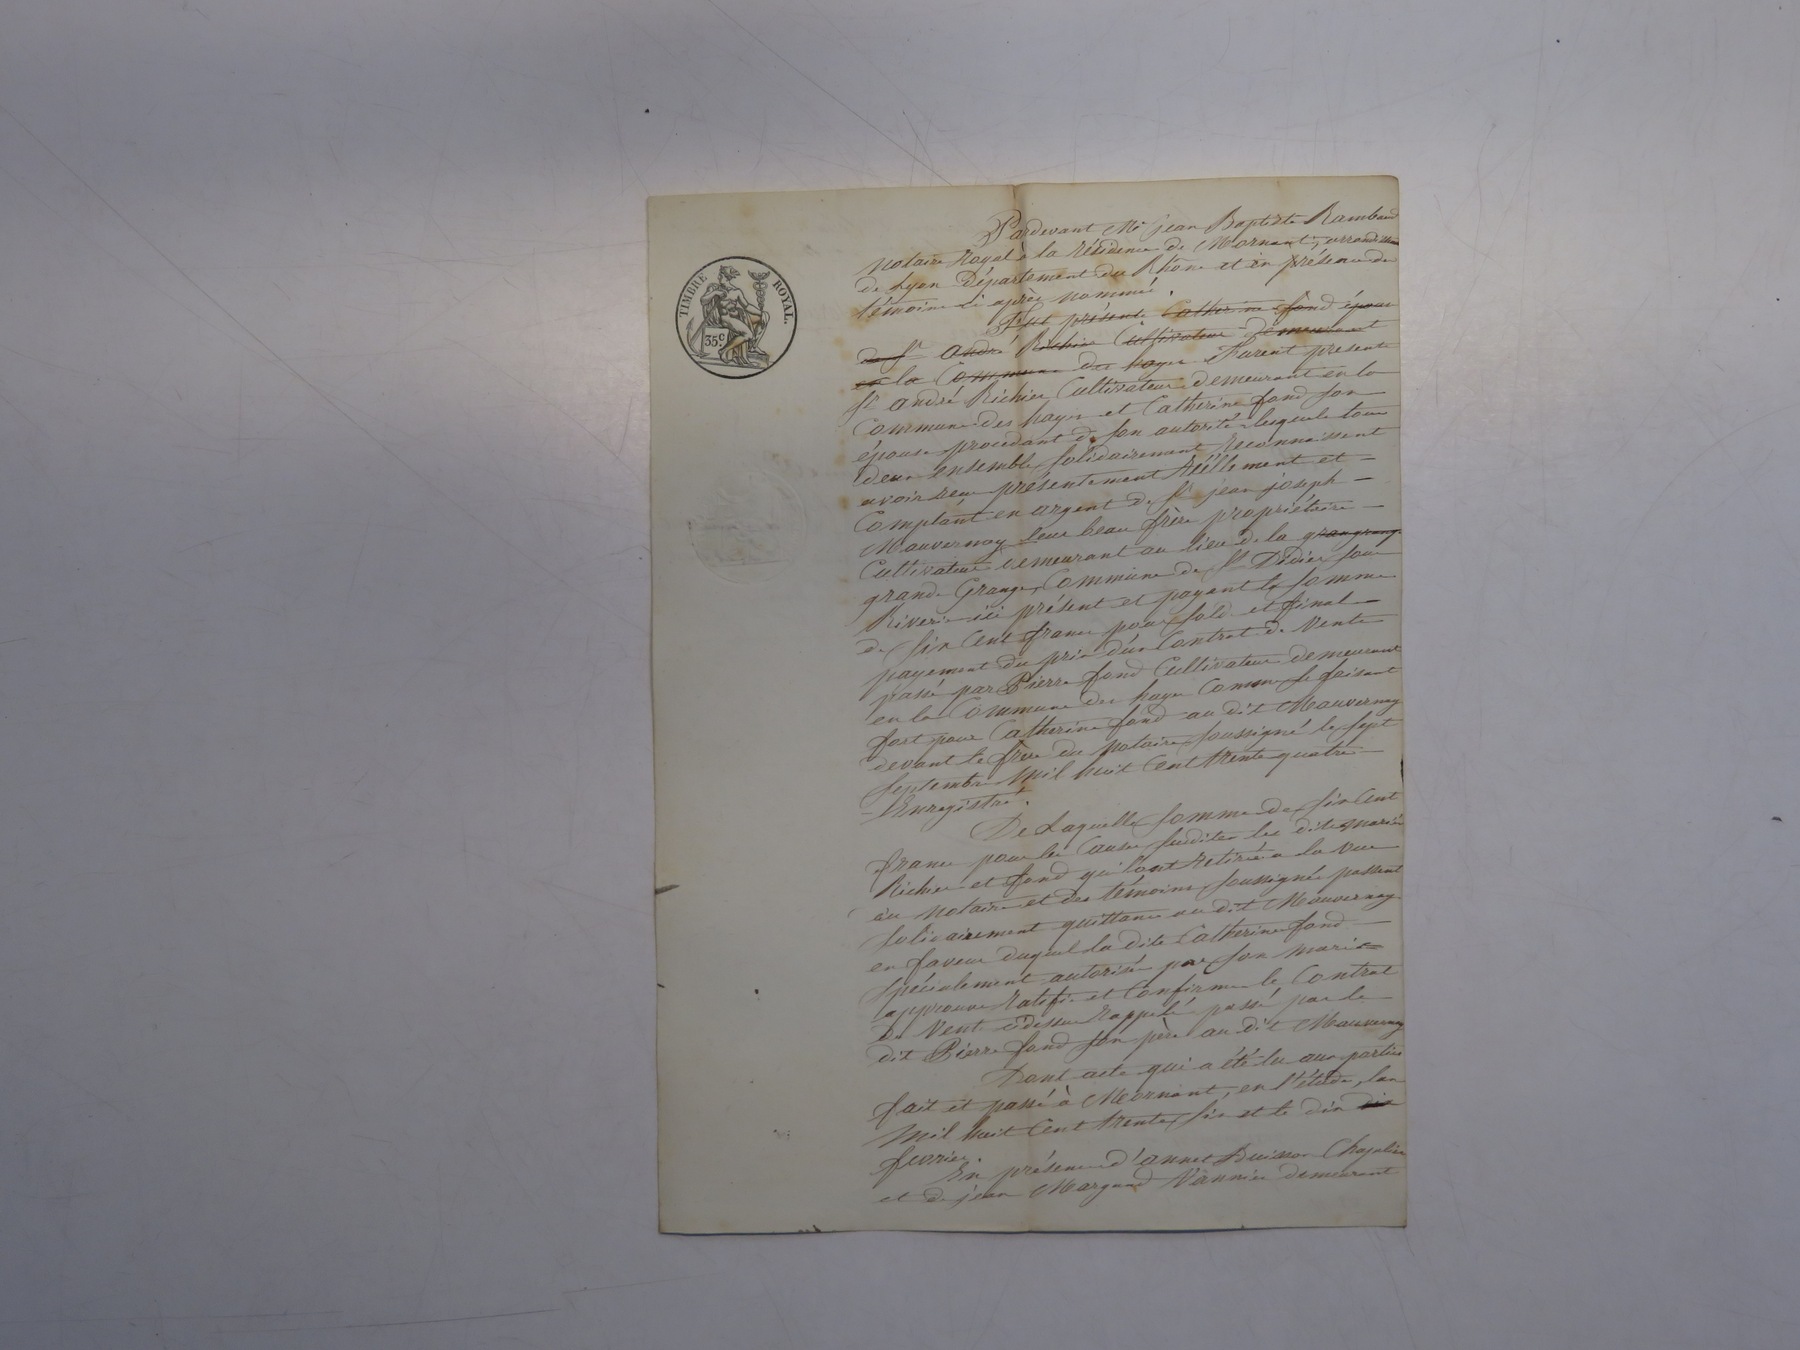 TIMBRE ROYAL.
35c
Pardevant Me jean Baptiste Rambaud
Notaire Royal à la résidence de Mornant, arrondissem
de Lyon Département du Rhône et en présence des
témoins ci après nommés.
Fut présente Catherine fond épouse
du sr andré Richier Cultivateur demeurant
en la Commune des hayes Furent présents
sr andré Richier Cultivateur demeurant en la
Commune des hayes et Catherine fond son
épouse procedant de son autorité lesquels tous
deux ensemble solidairement reconnaissent
avoir reçu présentement réellement et
Comptant en argent de sr jean joseph
Mauvernay leur beau frère propriétaire
Cultivateur demeurant au lieu de la
grande Grange, Commune de St Didier sous
Riverie ici présent et payant la somme
de six Cent francs pour solde et final
payement du prix d'un Contrat de Vente
passé par Pierre fond Cultivateur demeurant
en la Commune des hayes Comme se faisant
fort pour Catherine fond au dit Mauvernay
devant le frère du Notaire soussigné le sept
septembre Mil huit Cent trente quatre
Enregistré.
De Laquelle somme de six Cent
francs pour les Causes susdites les dits mariés
Richier et fond qui l'ont retirée a la vue
du Notaire et des témoins soussignés passent
solidairement quittance au dit Mauvernay
en faveur duquel la dite Catherine fond
spécialement autorisée par son mari
approuve ratifie et Confirme le Contrat
de Vente cidessus rappelé passé par le
dit Pierre fond son père au dit Mauvernay
Dont acte qui a été lu aux parties
fait et passé à Mornant, en l'étude, l'an
Mil huit Cent trente six et le dix dix
fevrier.
En présence d'annet Buisson Chapelier
et de jean Margand Vannier demeurant